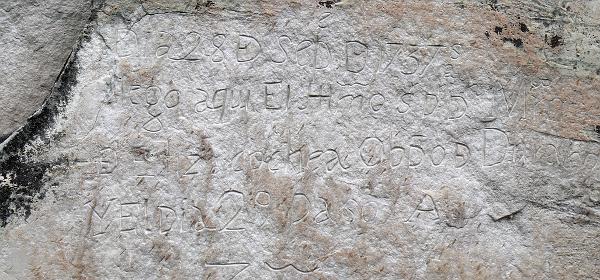 Dia 28 Đ Seb. Đ 1737
llego aqui El Illmo S D D
Đ Elizaecochea Obpo Đ Durango
Y El Dia 29 Paso A